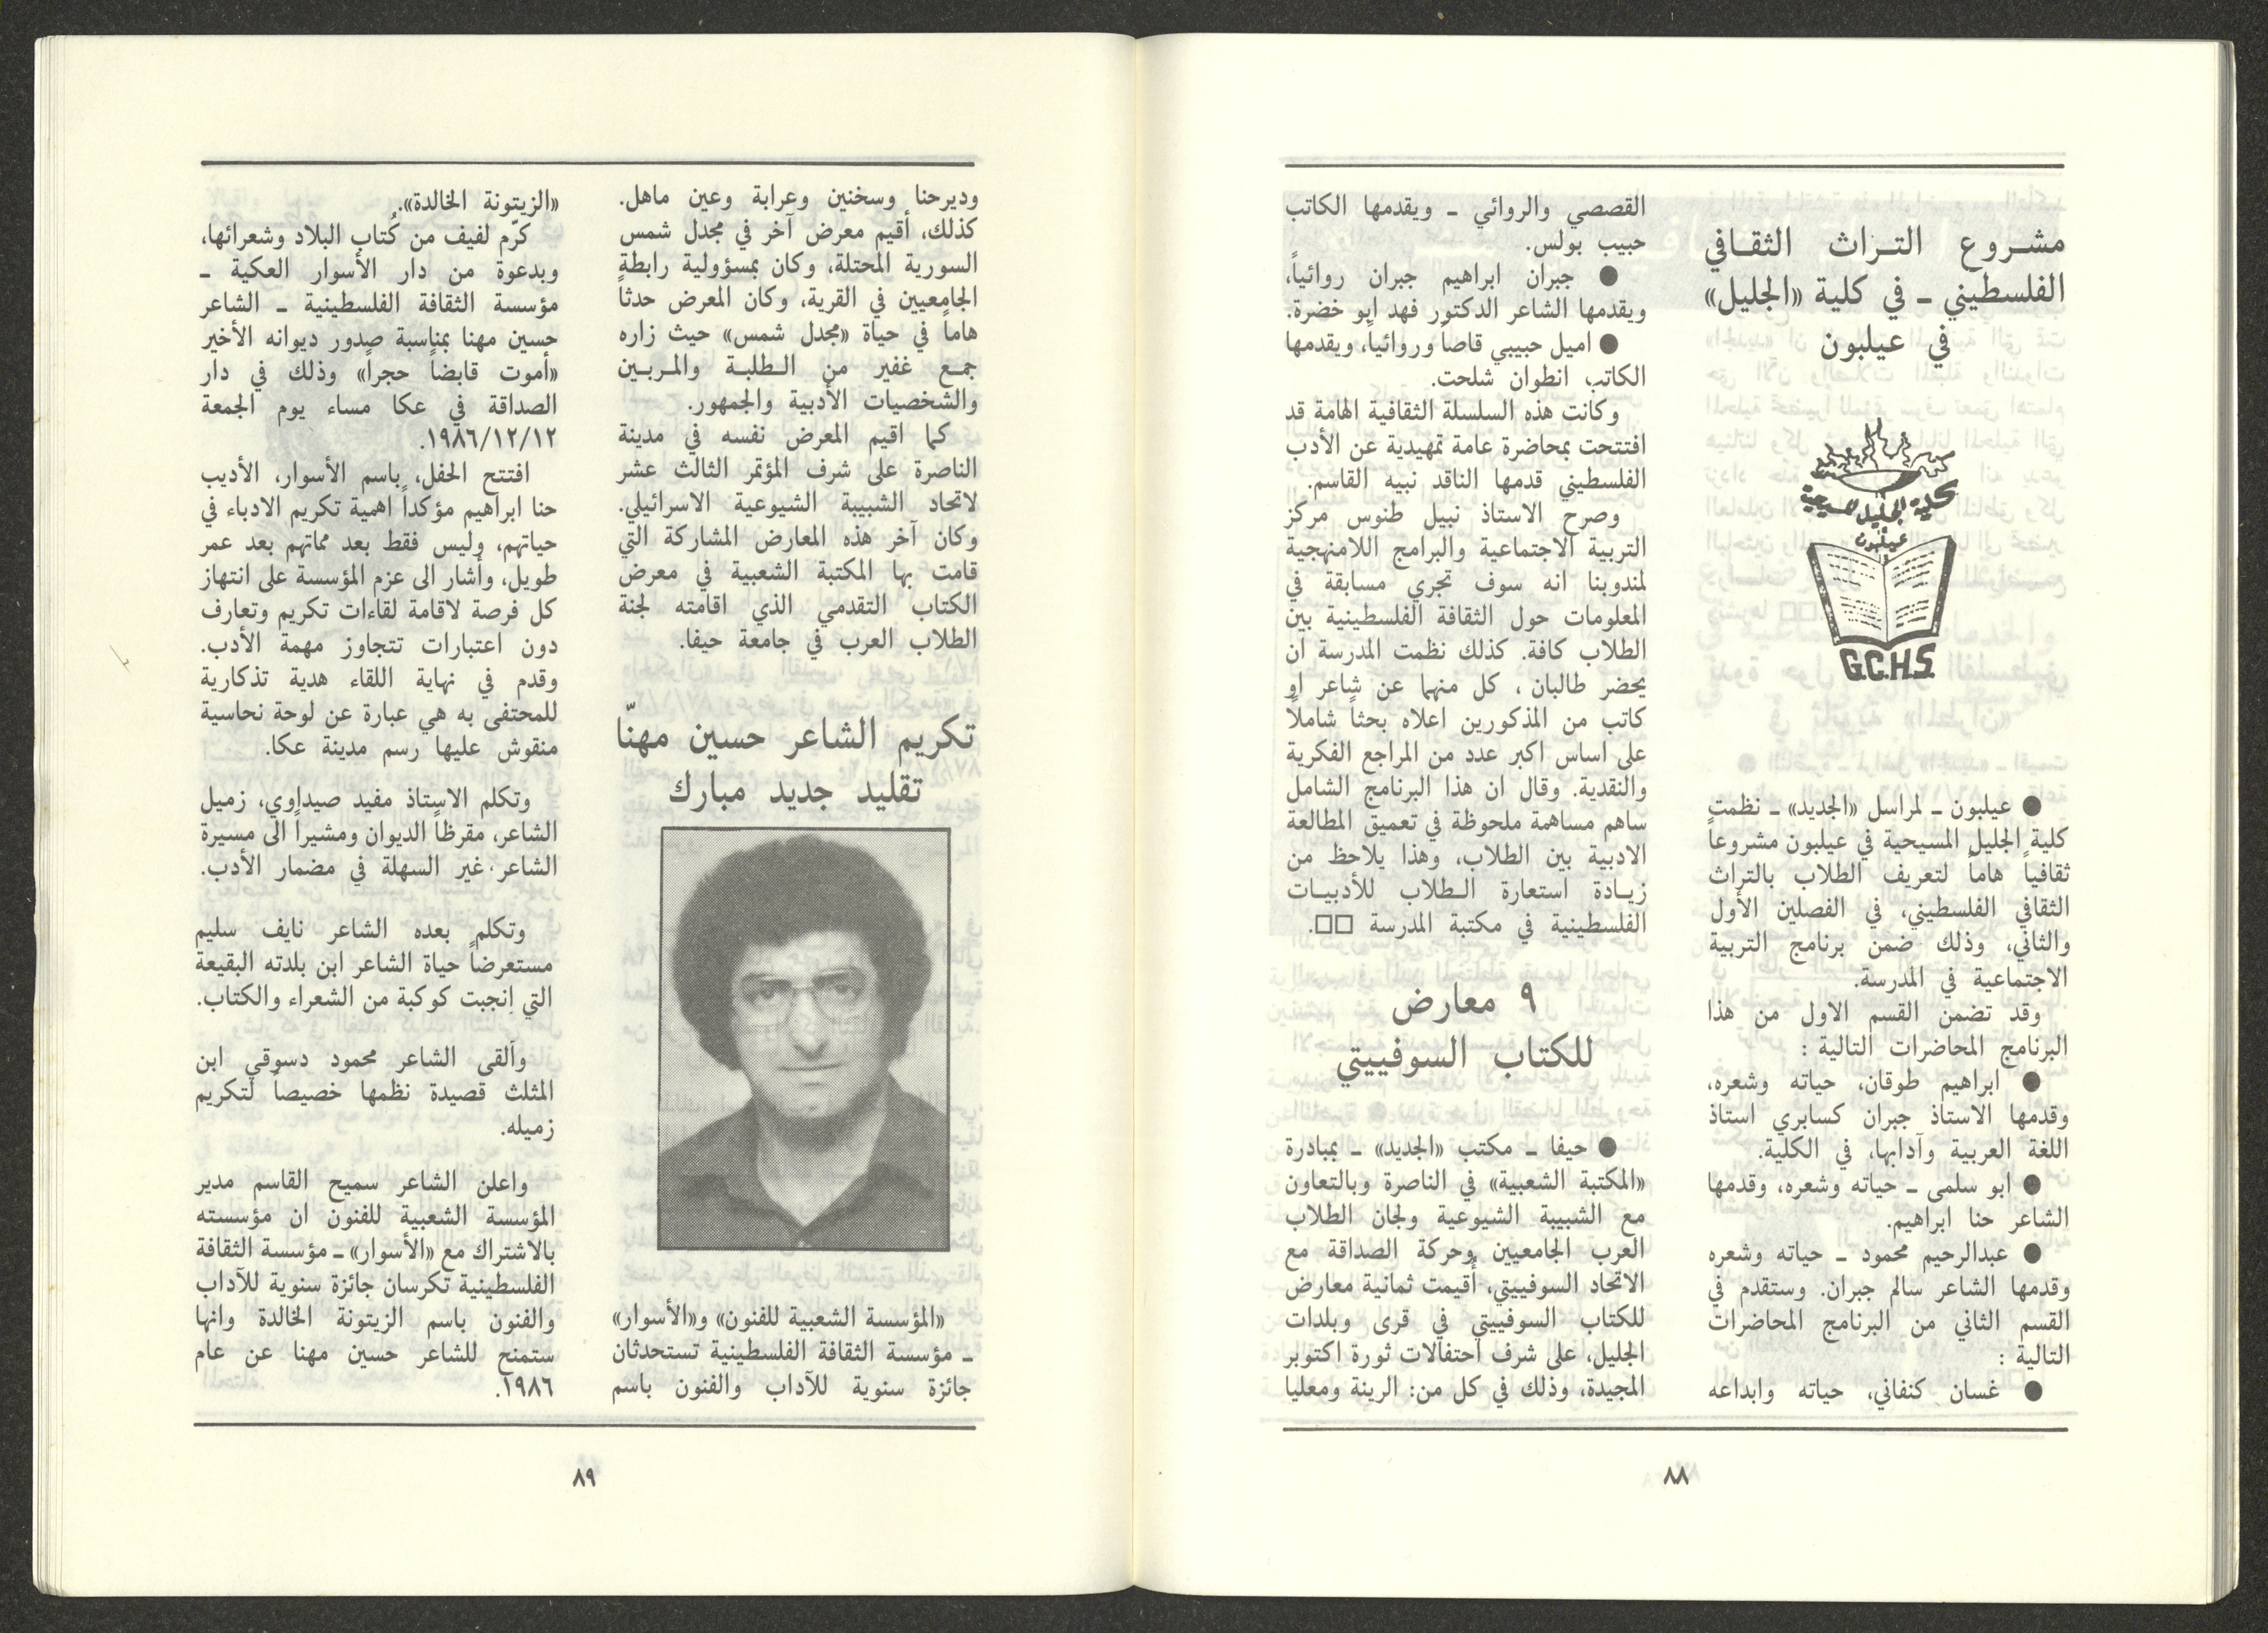 مشروع التراث الثقافي
الفلسطيني ـ في كلية «الجليل»
في عيلبون
كلية الجليل المسيحية
عيلبون
G.C.H.S.
● عيلبون ـ لمراسل «الجديد» ـ نظمت
كلية الجليل المسيحية في عيلبون مشروعاً
ثقافياً هاماً لتعريف الطلاب بالتراث
الثقافي الفلسطيني، في الفصلين الأول
والثاني، وذلك ضمن برنامج التربية
الاجتماعية في المدرسة.
وقد تضمن القسم الاول من هذا
البرنامج المحاضرات التالية :
● ابراهيم طوقان، حياته وشعره،
وقدمها الاستاذ جبران كسابري استاذ
اللغة العربية وآدابها، في الكلية.
● ابو سلمى ـ حياته وشعره، وقدمها
الشاعر حنا ابراهيم.
● عبدالرحيم محمود ـ حياته وشعره
وقدمها الشاعر سالم جبران. وستقدم في
القسم الثاني من البرنامج المحاضرات
التالية :
● غسان كنفاني، حياته وابداعه
القصصي والروائي ـ ويقدمها الكاتب
حبيب بولس.
● جبران ابراهيم جبران روائياً،
ويقدمها الشاعر الدكتور فهد ابو خضرة.
● اميل حبيبي قاصاً وروائياً، ويقدمها
الكاتب انطوان شلحت.
وكانت هذه السلسلة الثقافية الهامة قد
افتتحت بمحاضرة عامة تمهيدية عن الأدب
الفلسطيني قدمها الناقد نبيه القاسم.
وصرح الاستاذ نبيل طنوس مركز
التربية الاجتماعية والبرامج اللامنهجية
لمندوبنا انه سوف تجري مسابقة في
المعلومات حول الثقافة الفلسطينية بين
الطلاب كافة. كذلك نظمت المدرسة ان
يحضر طالبان ، كل منهما عن شاعر او
كاتب من المذكورين اعلاه بحثاً شاملاً
على اساس اكبر عدد من المراجع الفكرية
والنقدية. وقال ان هذا البرنامج الشامل
ساهم مساهمة ملحوظة في تعميق المطالعة
الادبية بين الطلاب، وهذا يلاحظ من
زيادة استعارة الطلاب للأدبيات
الفلسطينية في مكتبة المدرسة □□.
٩ معارض
للكتاب السوفييتي
● حيفا ـ مكتب «الجديد» ـ بمبادرة
«المكتبة الشعبية» في الناصرة وبالتعاون
مع الشبيبة الشيوعية ولجان الطلاب
العرب الجامعيين وحركة الصداقة مع
الاتحاد السوفييتي، أقيمت ثمانية معارض
للكتاب السوفييتي في قرى وبلدات
الجليل، على شرف احتفالات ثورة اكتوبر
المجيدة، وذلك في كل من: الرينة ومعليا
٨٨
وديرحنا وسخنين وعرابة وعين ماهل.
كذلك، أقيم معرض آخر في مجدل شمس
السورية المحتلة، وكان بمسؤولية رابطة
الجامعيين في القرية، وكان المعرض حدثاً
هاماً في حياة «مجدل شمس» حيث زاره
جمع غفير من الطلبة والمربين
والشخصيات الأدبية والجمهور.
كما اقيم المعرض نفسه في مدينة
الناصرة على شرف المؤتمر الثالث عشر
لاتحاد الشبيبة الشيوعية الاسرائيلي.
وكان آخر هذه المعارض المشاركة التي
قامت بها المكتبة الشعبية في معرض
الكتاب التقدمي الذي اقامته لجنة
الطلاب العرب في جامعة حيفا.
تكريم الشاعر حسين مهنّا
تقليد جديد مبارك
«المؤسسة الشعبية للفنون» و«الأسوار»
ـ مؤسسة الثقافة الفلسطينية تستحدثان
جائزة سنوية للآداب والفنون باسم
«الزيتونة الخالدة».
كرّم لفيف من كُتاب البلاد وشعرائها،
وبدعوة من دار الأسوار العكية ـ
مؤسسة الثقافة الفلسطينية ـ الشاعر
حسين مهنا بمناسبة صدور ديوانه الأخير
«أموت قابضاً حجراً» وذلك في دار
الصداقة في عكا مساء يوم الجمعة
١٩٨٦/١٢/١٢.
افتتح الحفل، باسم الأسوار، الأديب
حنا ابراهيم مؤكداً اهمية تكريم الادباء في
حياتهم، وليس فقط بعد مماتهم بعد عمر
طويل، وأشار الى عزم المؤسسة على انتهاز
كل فرصة لاقامة لقاءات تكريم وتعارف
دون اعتبارات تتجاوز مهمة الأدب.
وقدم في نهاية اللقاء هدية تذكارية
للمحتفى به هي عبارة عن لوحة نحاسية
منقوش عليها رسم مدينة عكا.
وتكلم الاستاذ مفيد صيداوي، زميل
الشاعر، مقرظاً الديوان ومشيراً الى مسيرة
الشاعر غير السهلة في مضمار الأدب.
وتكلم بعده الشاعر نايف سليم
مستعرضاً حياة الشاعر ابن بلدته البقيعة
التي إنجبت كوكبة من الشعراء والكتاب.
وألقى الشاعر محمود دسوقي ابن
المثلث قصيدة نظمها خصيصاً لتكريم
زميله.
واعلن الشاعر سميح القاسم مدير
المؤسسة الشعبية للفنون ان مؤسسته
بالاشتراك مع «الأسوار» ـ مؤسسة الثقافة
الفلسطينية تكرسان جائزة سنوية للآداب
والفنون باسم الزيتونة الخالدة وانها
ستمنح للشاعر حسين مهنا عن عام
١٩٨٦.
٨٩